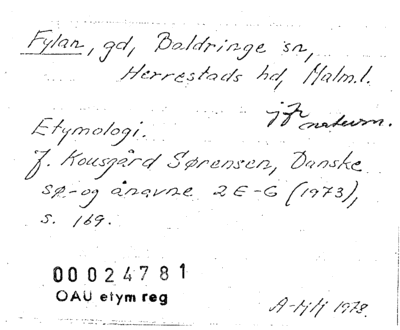 Fylan, gd, Baldringe sn,
Herrestads hd, Malm.l.
jfr
naturn.
Etymologi.
J. Kousgård Sørensen, Danske
sø- og ånavne 2 E-G (1973),
s. 169.
00024781
OAU etym reg
1978